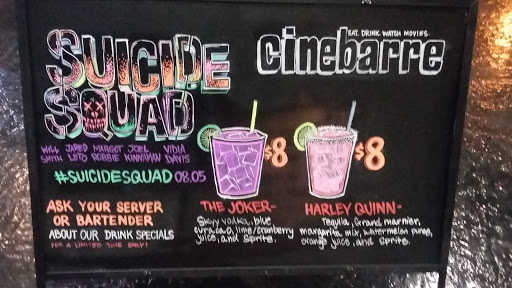 SUICIDE
SQUAD
EAT. DRINK. WATCH MOVIES.
cinebarre
WILL JARED MARGOT JOEL VIOLA
SMITH LETO ROBBIE KINNAMAN DAVIS
#SUICIDESQUAD 08.05
ASK YOUR SERVER
OR BARTENDER
ABOUT OUR DRINK SPECIALS
FOR A LIMITED TIME ONLY!
$8
THE JOKER-
Skyy vodka, blue
curacao, lime/cranberry
juice, and Sprite.
$8
HARLEY QUINN-
Tequila, Grand marnier,
margarita mix, watermelon puree,
orange juice, and Sprite.